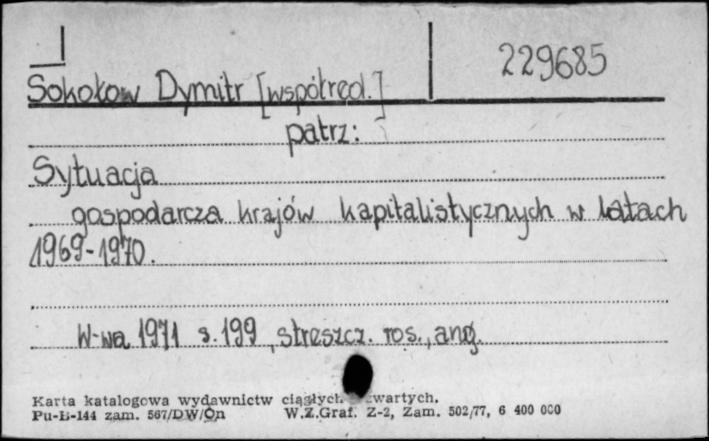 229685
Sokołow Dymitr [współred.]
patrz:
Sytuacja
gospodarcza krajów kapitalistycznych w latach
1969-1970.
W-wa 1971 s. 199, streszcz. ros., ang.
Karta katalogowa wydawnictw ciągłych zwartych.
Pu-B-144 zam. 567/DW/On W.Z.Graf. Z-2, Zam. 502/77, 6 400 000